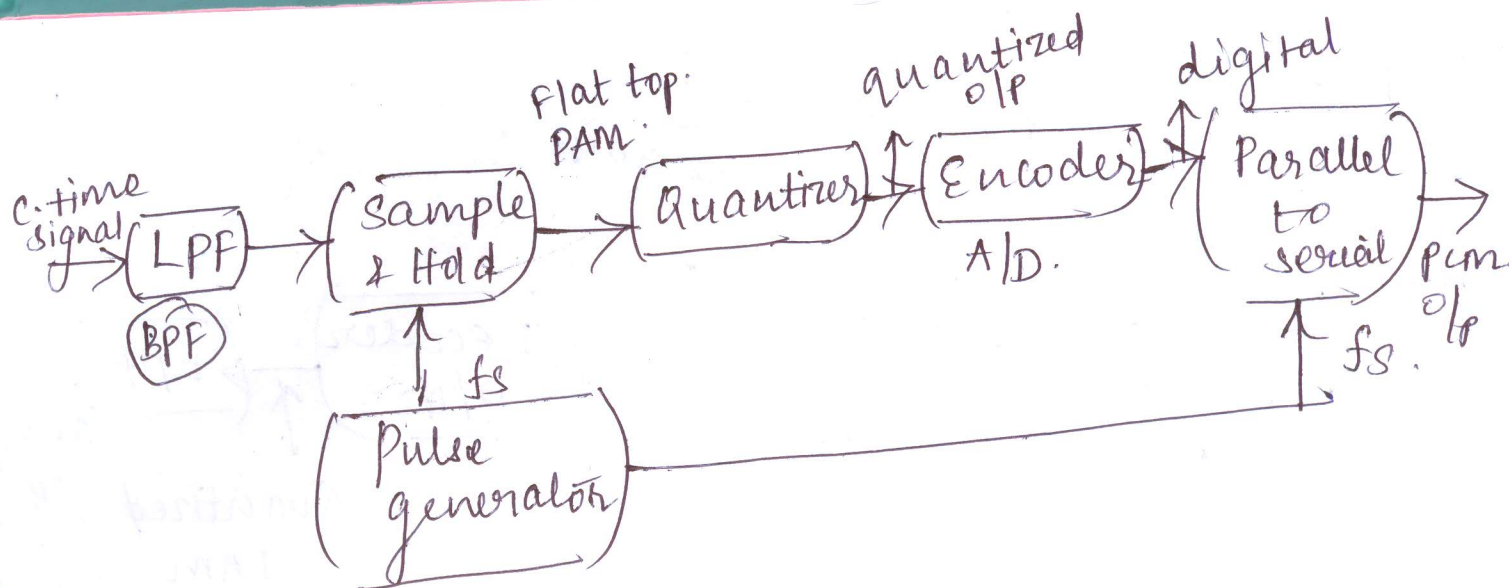 C. time
signal
LPF
BPF
Sample
& Hold
Flat top.
PAM.
Quantizer
quantized
o/p
Encoder
A/D.
digital
Parallel
to
serial
PCM
o/p
fs
fs.
Pulse
generator